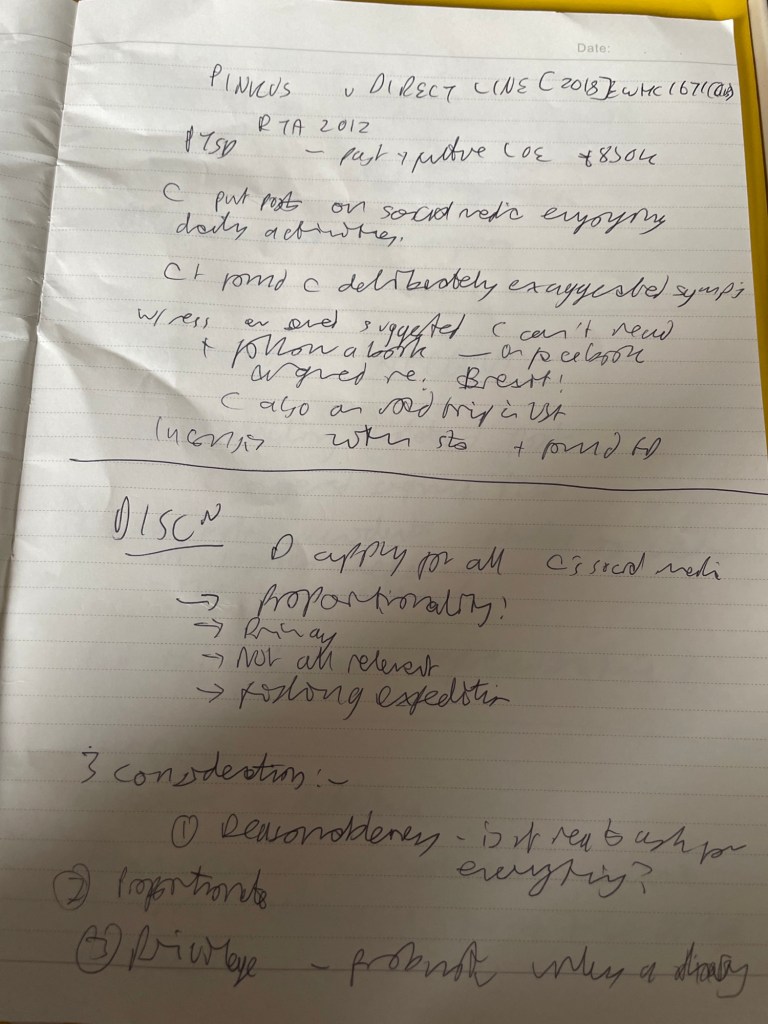 Date:
PINKUS v DIRECT LINE [2018] EWHC 1671 (QB)
RTA 2012
PTSD - past + future LOE £850k
C put posts on social media enjoying
daily activities.
Ct found C deliberately exaggerated symp's
w/ress suggested C can't read
+ follow a book — on facebook
argued re. Brexit!
C also on road trip in USA
Inconsis with sta + found FD
DISCN
D apply for all C's social media
→ Proportionality!
→ Privacy
→ Not all relevant
→ Fishing expedition
3 considerations:-
① Reasonableness - is it reas to ask for
everything?
② Proportionate
③ Privilege - probably unless a diary